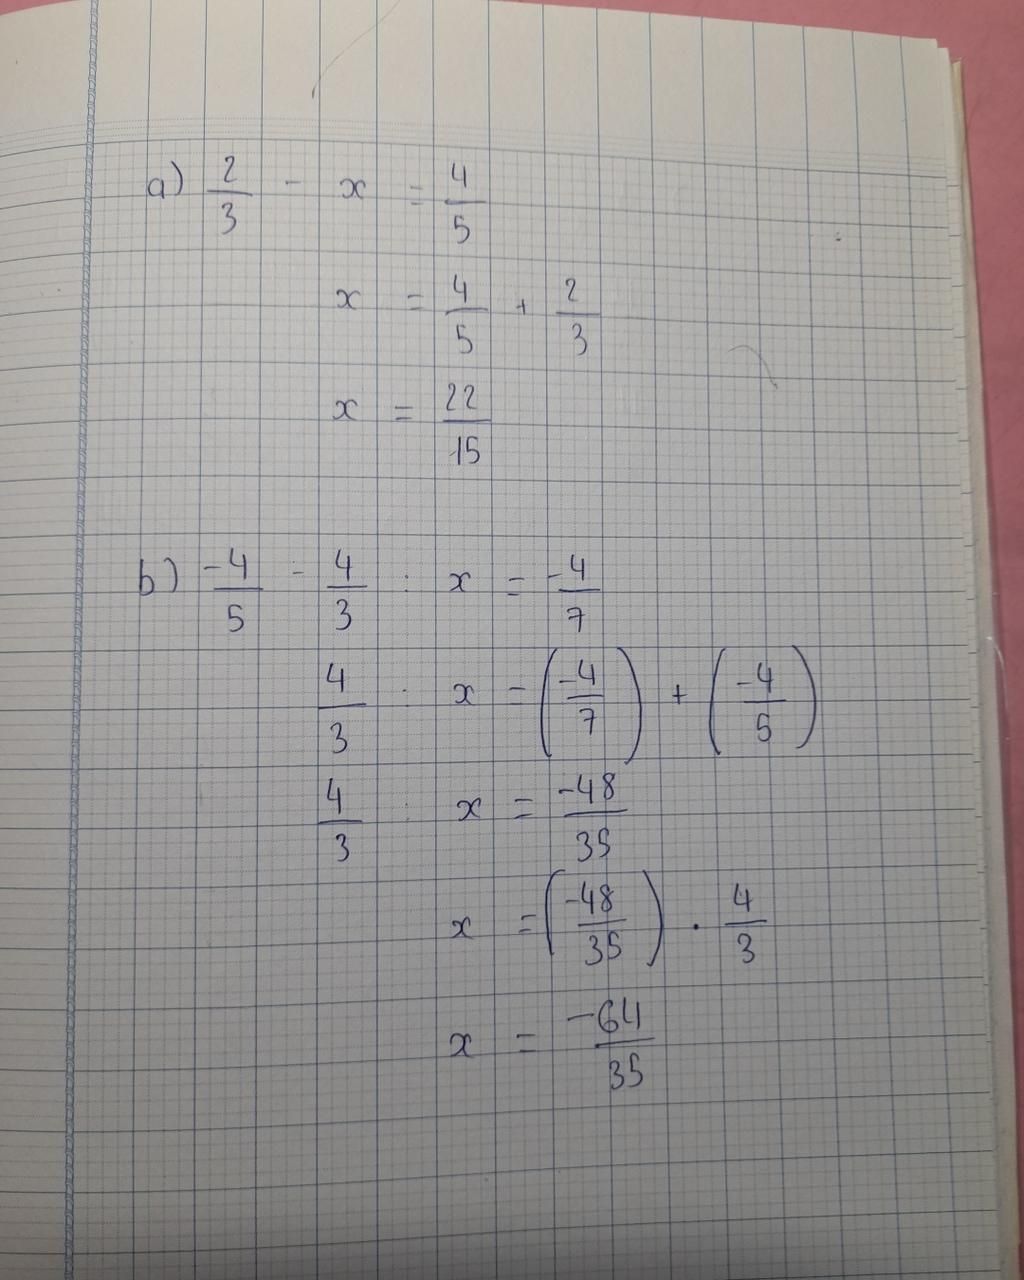 a) 2/3 - x = 4/5
x = 4/5 + 2/3
x = 22/15
b) -4/5 - 4/3 : x = -4/7
4/3 : x = (-4/7) + (-4/5)
4/3 : x = -48/35
x = (-48/35) . 4/3
x = -64/35